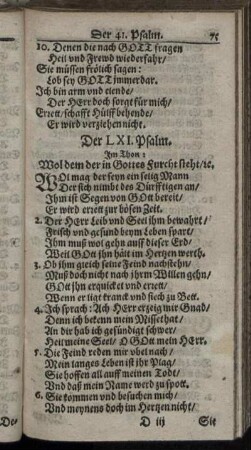 Der 41. Psalm. 75
10. Denen die nach GOTT fragen
Heil vnd Frewd wiederfahr/
Sie müssen frölich sagen:
Lob sey GOTT jmmerdar.
Ich bin arm vnd elende/
Der HErr doch sorgt für mich/
Errett/schafft Hülff behende/
Er wird verziehen nicht.
Der LXI. Psalm.
Im Thon:
Wol dem der in Gottes Furcht steht/ıc.
WOl mag der seyn ein selig Mann
Der sich nimbt des Dürfftigen an/
Ihm ist Segen von GOtt bereit/
Er wird errett zur bösen Zeit.
2. Der HErr Leib vnd Seel ihm bewahrt/
Frisch vnd gesund beym Leben spart/
Ihm muß wol gehn auff dieser Erd/
Weil GOtt ihn hält im Hertzen werth.
3. Ob ihm gleich seine Feind nachstehn/
Muß doch nicht nach jhrm Willen gehn/
GOtt jhn erquicket vnd errett/
Wenn er ligt kranck vnd siech zu Bett.
4. Ich sprach: Ach HErr erzeig mir Gnad/
Denn ich bekenn mein Missethat/
An dir hab ich gesündigt schwer/
Heil meine Seel/ O GOtt mein HErr.
5. Die Feind reden mir vbel nach/
Mein langes Leben ist ihr Plag/
Sie hoffen all auff meinen Todt/
Vnd daß mein Name werd zu spott.
6. Sie kommen vnd besuchen mich/
Vnd meynens doch im Hertzen nicht/
D iij Sie
De-